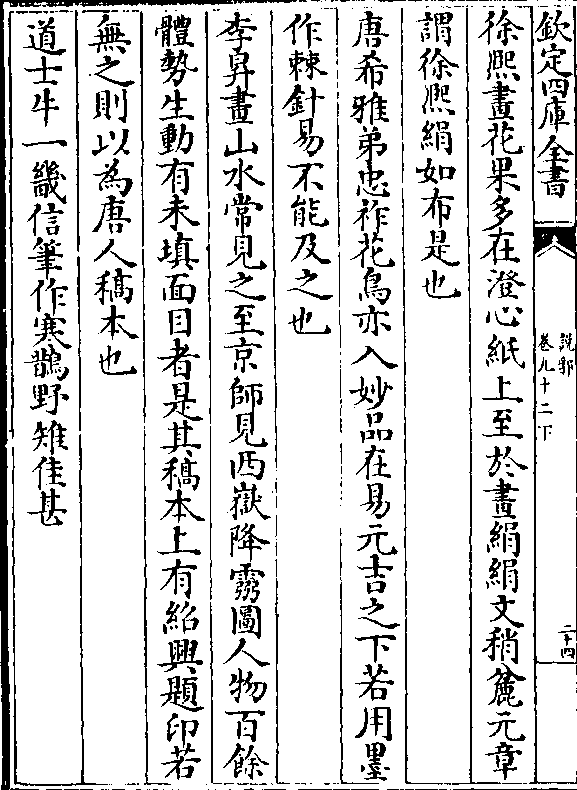 欽定四庫全書
說郛
卷九十二下
二十四
徐熙畫花果多在澄心紙上至於畫絹絹文稍麄元章
謂徐熙絹如布是也
唐希雅弟忠祚花鳥亦入妙品在易元吉之下若用墨
作棘針易不能及之也
李昇畫山水常見之至京師見西嶽降靈圖人物百餘
體勢生動有未填面目者是其稿本上有紹興題印若
無之則以為唐人稿本也
道士牛一畿信筆作寒鵲野雉佳甚